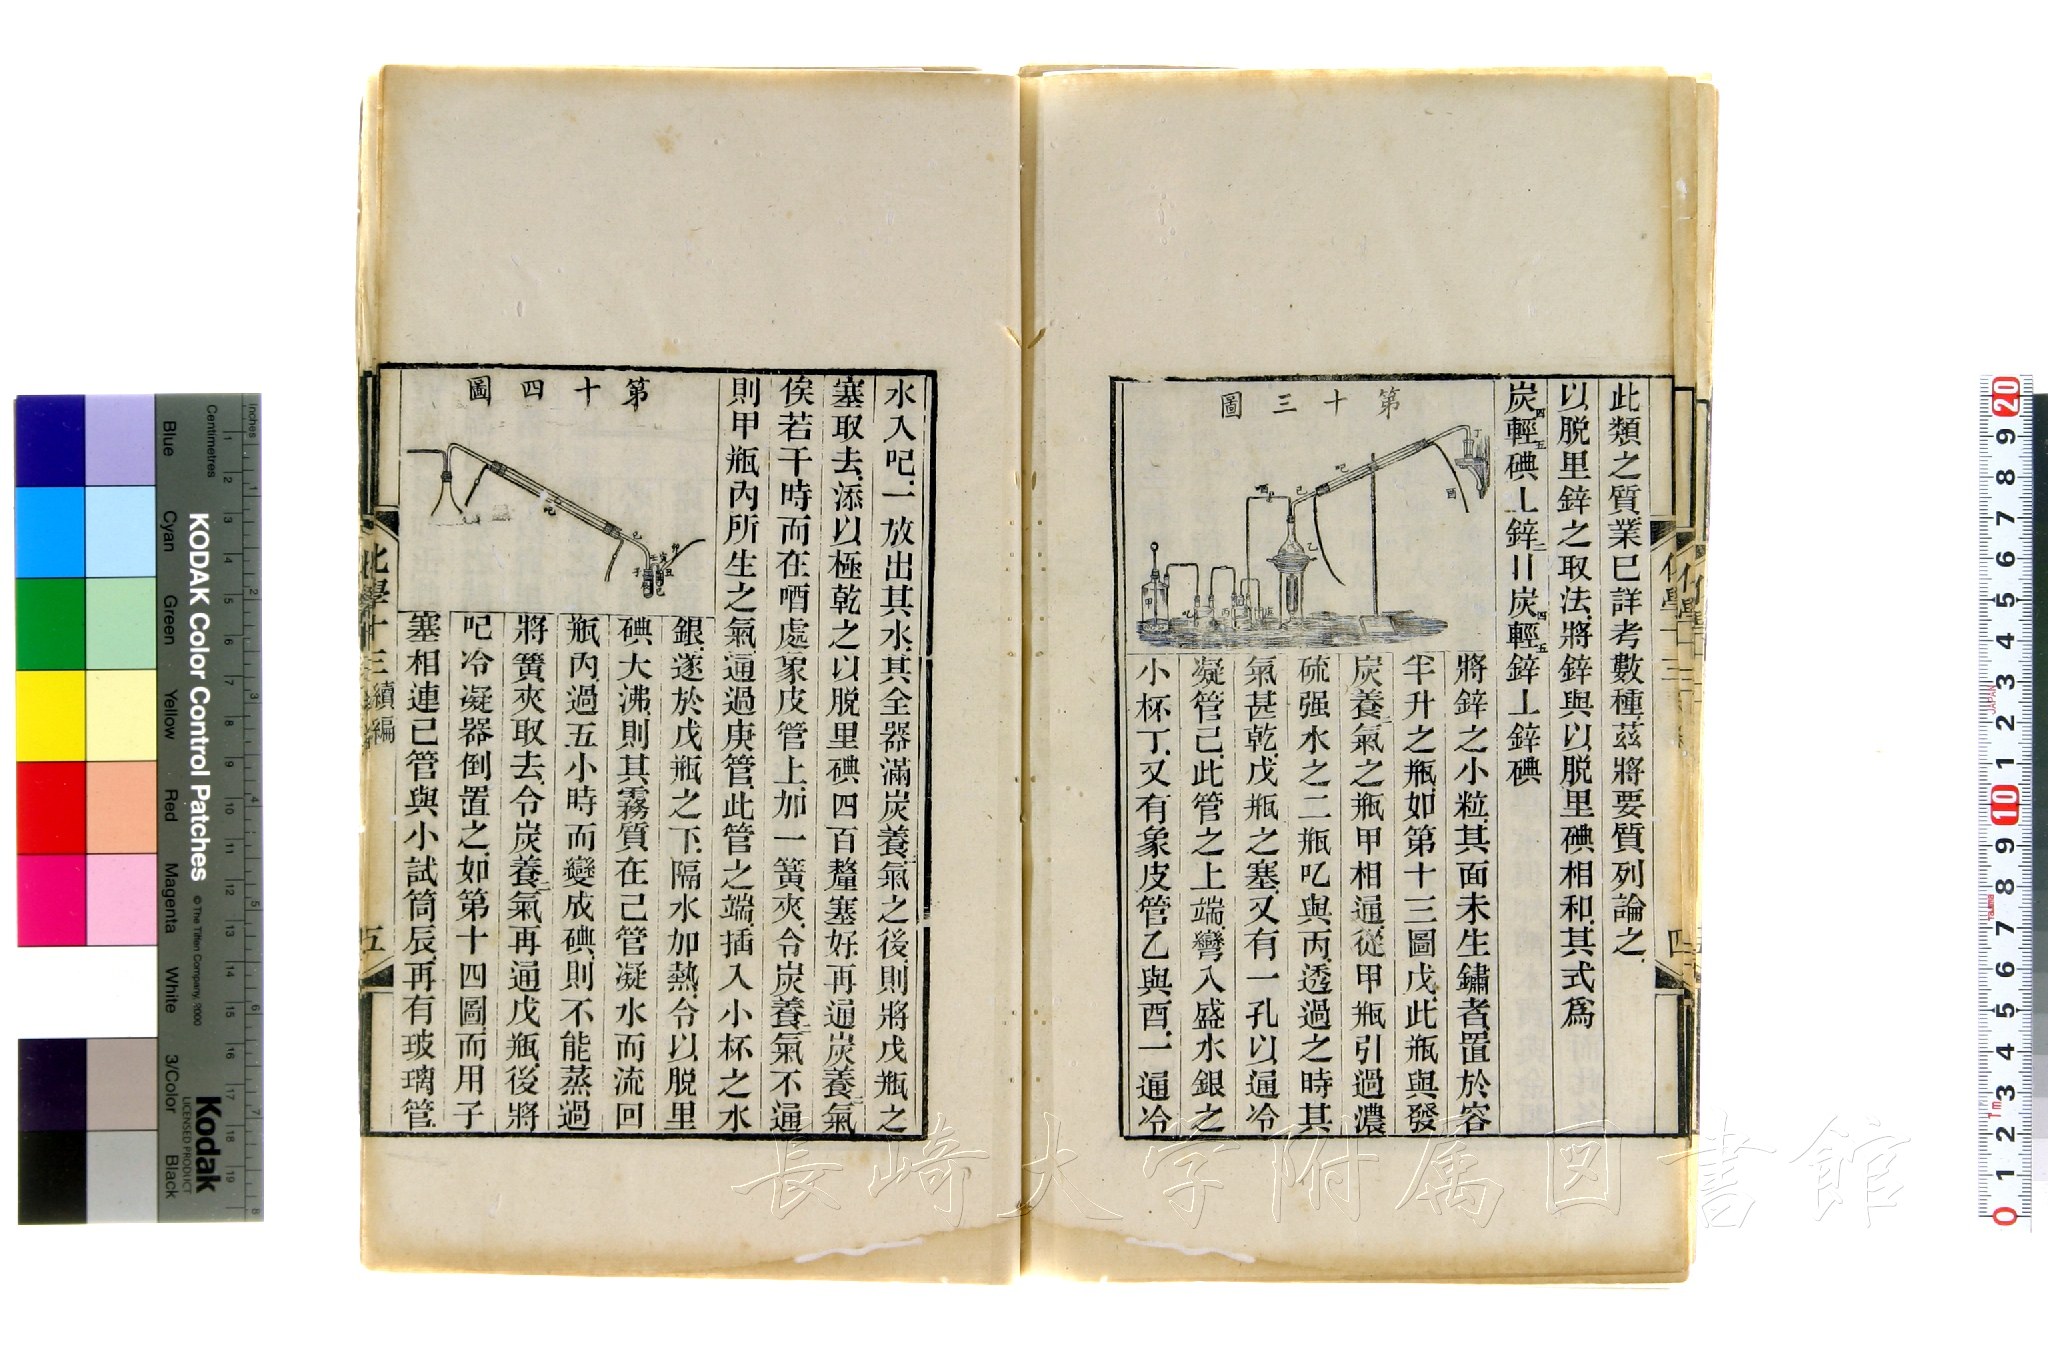 此類之質業已詳考數種茲將要質列論之
以脫里鋅之取法將鋅與以脫里碘相和其式爲
炭四輕五碘丄鋅二〢炭四輕五鋅丄鋅碘
第十三圖
將鋅之小粒其面未生鏽者置於容
半升之瓶如第十三圖戊此瓶與發
炭養二氣之瓶甲相通從甲瓶引過濃
硫强水之二瓶叱與丙透過之時其
氣甚乾戊瓶之塞又有一孔以通冷
凝管己此管之上端彎入盛水銀之
小杯丁又有象皮管乙與酉一通冷
水入吧一放出其水其全器滿炭養二氣之後則將戊瓶之
塞取去添以極乾之以脫里碘四百釐塞好再通炭養二氣
俟若干時而在唒處象皮管上加一簧夾令炭養二氣不通
則甲瓶內所生之氣通過庚管此管之端插入小杯之水
第十四圖
銀遂於戊瓶之下隔水加熱令以脫里
碘大沸則其霧質在己管凝水而流回
瓶內過五小時而變成碘則不能蒸過
將簧夾取去令炭養二氣再通戊瓶後將
吧冷凝器倒置之如第十四圖而用子
塞相連己管與小試筒辰再有玻璃管
化學十三 續編
五
四
長崎大学附属図書館
KODAK Color Control Patches
© The Tiffen Company, 2000
Kodak
LICENSED PRODUCT
Blue
Cyan
Green
Yellow
Red
Magenta
White
3/Color
Black
Centimetres
Inches
JAPAN